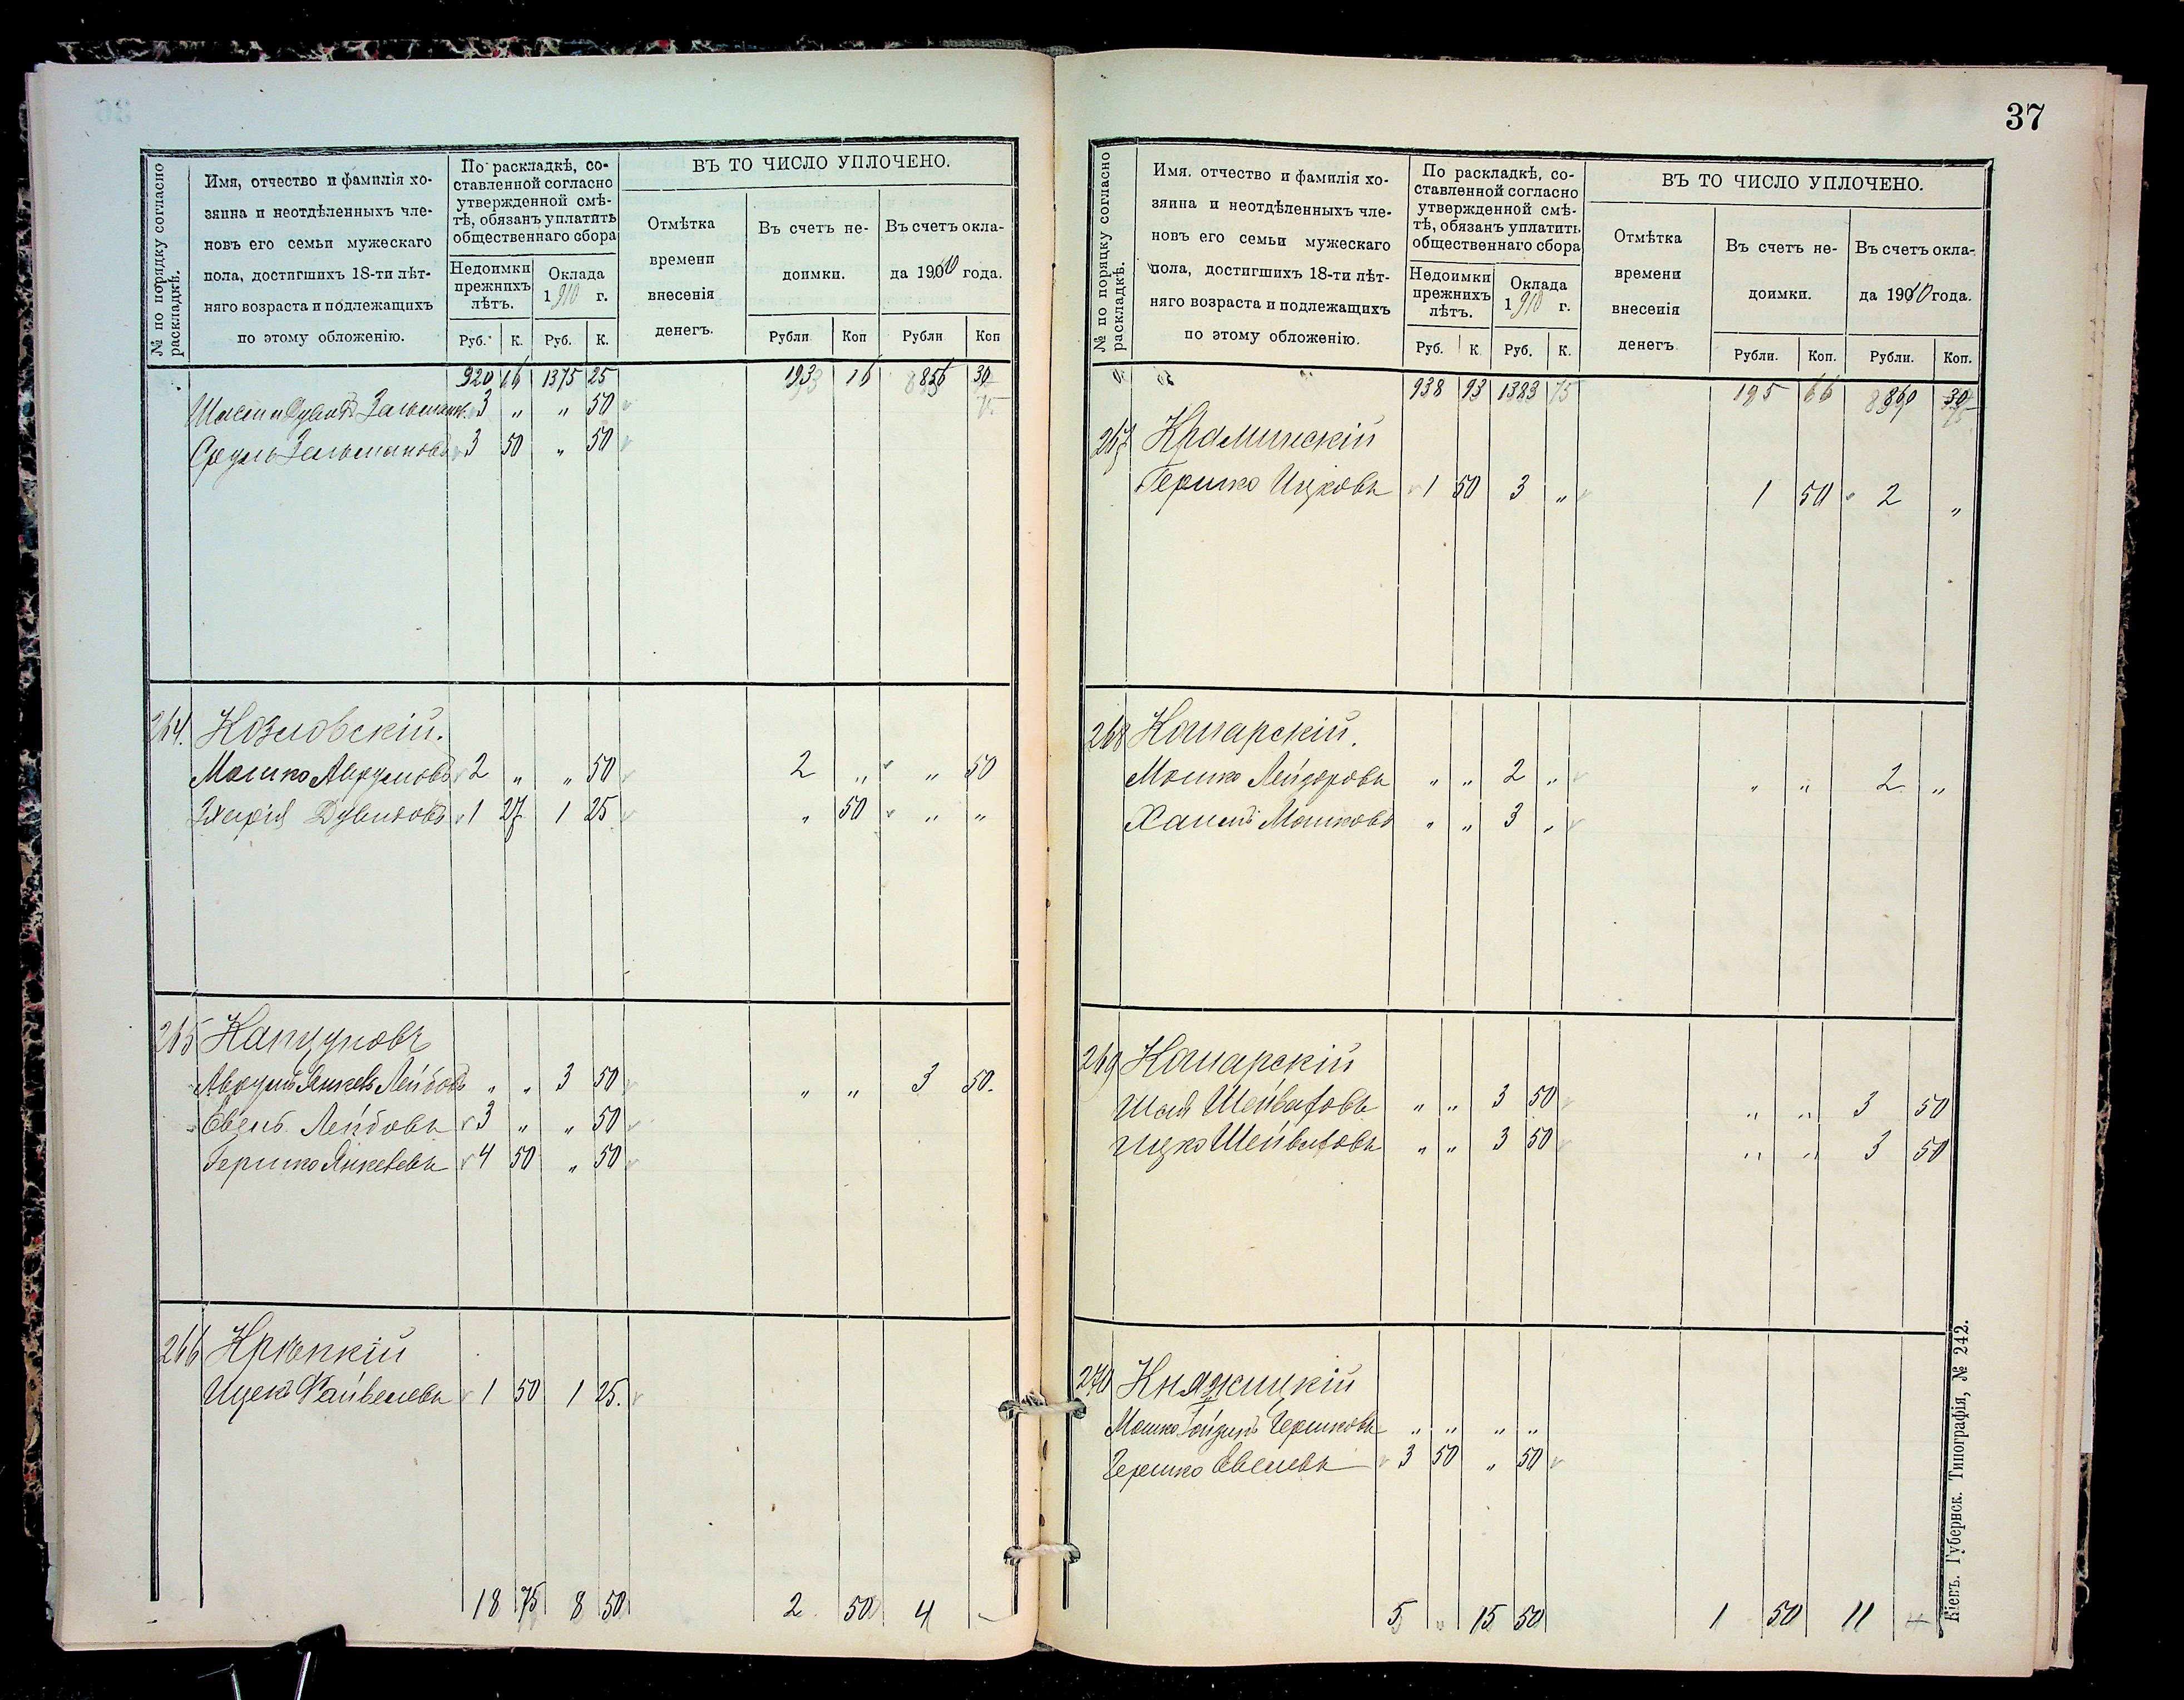 № по порядку согласно раскладкѣ.
Имя, отчество и фамилія хозяина и неотдѣленныхъ членовъ его семьи мужескаго пола, достигшихъ 18-ти лѣтняго возраста и подлежащихъ по этому обложенію.
По раскладкѣ, составленной согласно утвержденной смѣтѣ, обязанъ уплатить общественнаго сбора
Недоимки прежнихъ лѣтъ.
Оклада 1910 г.
Руб. К. Руб. К.
ВЪ ТО ЧИСЛО УПЛОЧЕНО.
Отмѣтка времени внесенія денегъ.
Въ счетъ недоимки.
Въ счетъ оклада 1910 года.
Рубли Коп Рубли Коп
920 16 1375 25 193 16 856 30
3 „ „ 50
Сруль Зельмановъ 3 50 „ 50
264. Козловскій.
Мошко Аврумовъ 2 „ „ 50 2 „ „ 50
Дувидовъ 1 27 1 25 „ 50 „ „
265 Капцуновъ
Аврумъ Янкель Лейбовъ „ „ 3 50 „ „ 3 50.
Евель Лейбовъ 3 „ „ 50
Гершко Янкелевъ 4 50 „ 50
266
Ицекъ Файвелевъ 1 50 1 25.
18 75 8 50 2 50 4 —
37
№ по порядку согласно раскладкѣ.
Имя, отчество и фамилія хозяина и неотдѣленныхъ членовъ его семьи мужескаго пола, достигшихъ 18-ти лѣтняго возраста и подлежащихъ по этому обложенію.
По раскладкѣ, составленной согласно утвержденной смѣтѣ, обязанъ уплатить общественнаго сбора
Недоимки прежнихъ лѣтъ.
Оклада 1910 г.
Руб. К Руб. К.
ВЪ ТО ЧИСЛО УПЛОЧЕНО.
Отмѣтка времени внесенія денегъ
Въ счетъ недоимки.
Въ счетъ оклада 1910 года.
Рубли. Коп. Рубли. Коп.
938 93 1383 75 195 66 860 30
267 Краминскій
Гершко Ицковъ 1 50 3 „ 1 50 2 „
268 Кошарскій.
Мошко Лейзоровъ „ „ 2 „ „ „ 2 „
Хаимъ Мошковъ „ „ 3 „
269 Кошарскій
Шая „ „ 3 50 „ „ 3 50
Ицко „ „ 3 50 „ „ 3 50
270 Княжицкій
Мошко Гершковъ „ „ „ „
Гершко Евелевъ 3 50 „ 50
5 „ 15 50 1 50 11
Кіевъ. Губернск. Типографія, № 242.